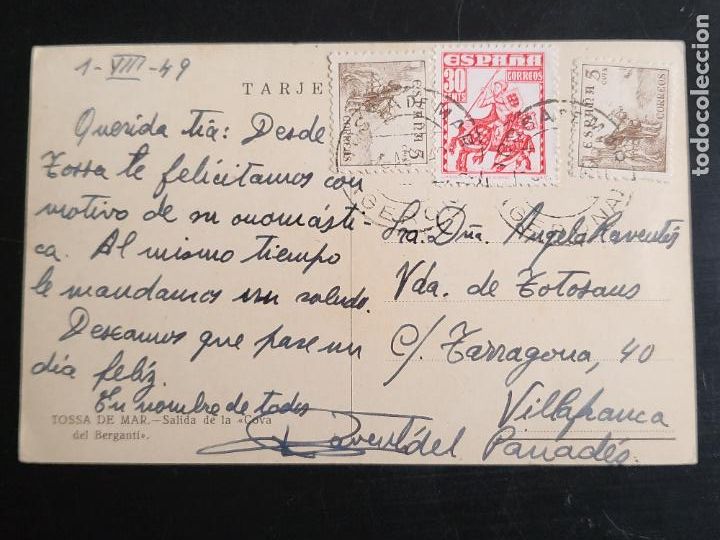 1-VIII-49
TARJE
Querida tía: Desde
Tossa le felicitamos con
motivo de su onomásti-
ca. Al mismo tiempo
le mandamos un saludo.
Deseamos que pase un
día feliz.
En nombre de todos
TOSSA DE MAR.—Salida de la «Cova
del Berganti».
ESPAÑA 5
CORREOS
ESPAÑA
30
CENTS
CORREOS
ESPAÑA 5
CORREOS
Sra. Dña. Angela Raventós
Vda. de Totosaus
C/ Tarragona, 40
Villafranca
del Panadés
todocoleccion.net